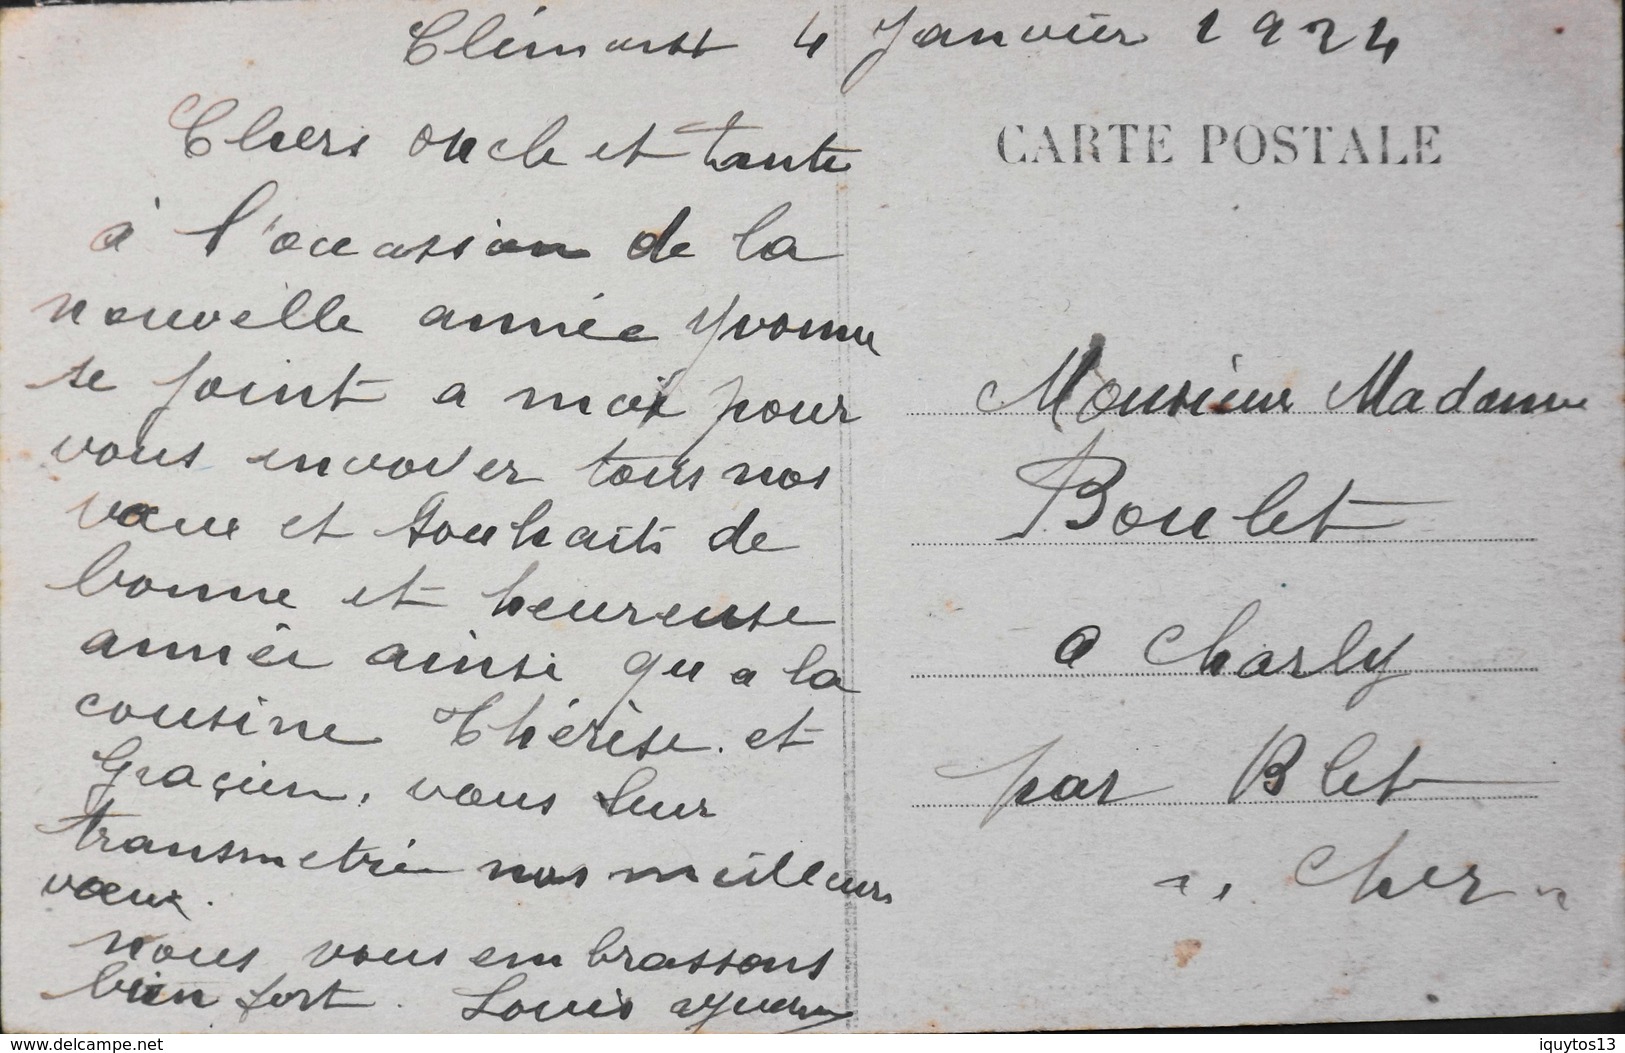 4 Janvier 1924
Chers oncle et tante
à l'occasion de la
nouvelle année Yvonne
se joint a moi pour
vous envoyer tous nos
vœux et souhaits de
bonne et heureuse
année ainsi qu a la
cousine Thérèse. et
Graçien, vous leur
transmetré nos meilleurs
vœux.
nous vous embrassons
bien fort. Louis
CARTE POSTALE
Monsieur Madame
Boulet
a Charly
par Blet
Cher
www.delcampe.net
iquytos13